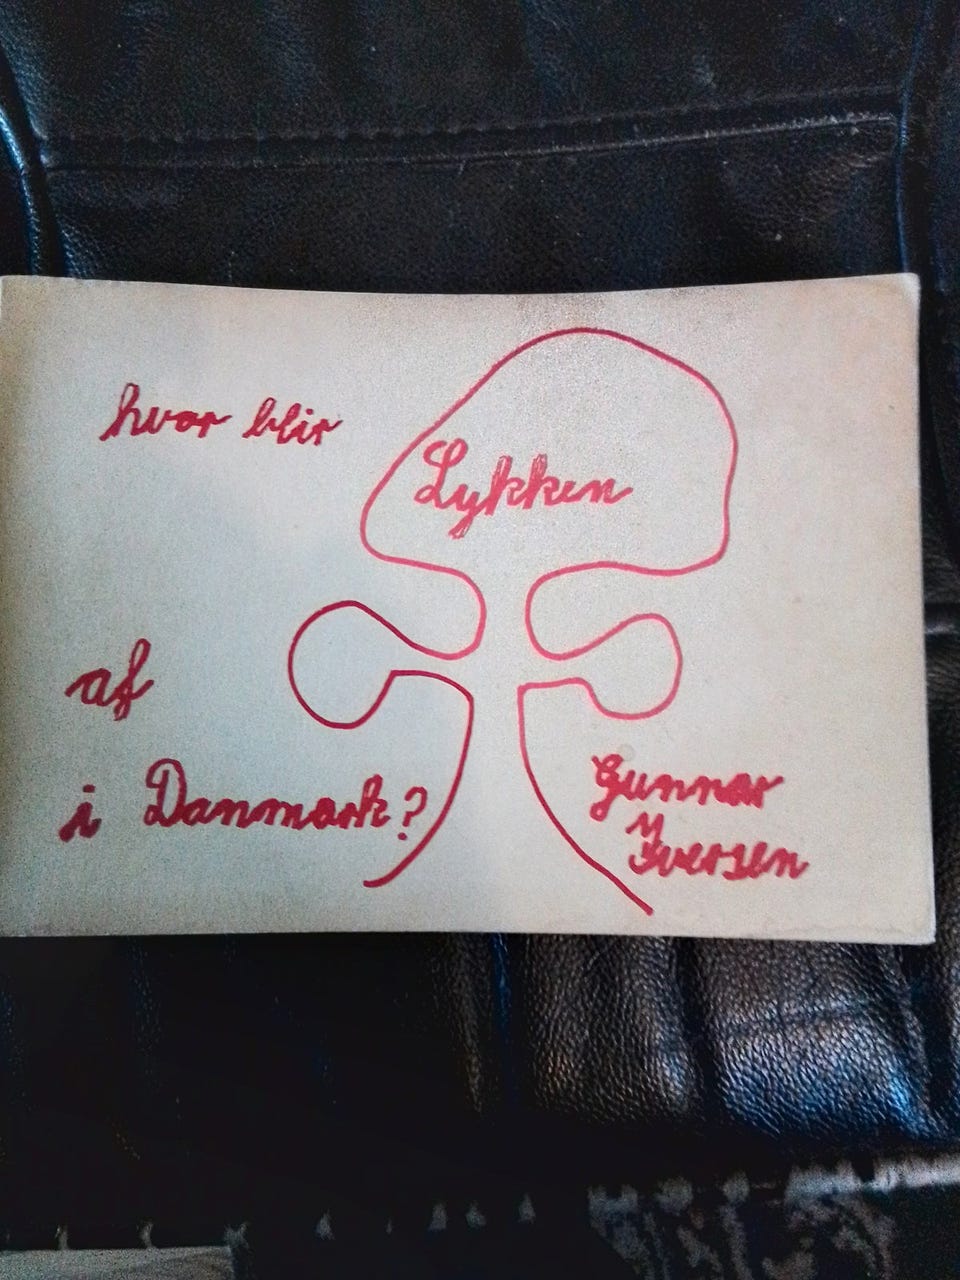 hvor blir
Lykken
af
i Danmark?
Gunnar
Yversen